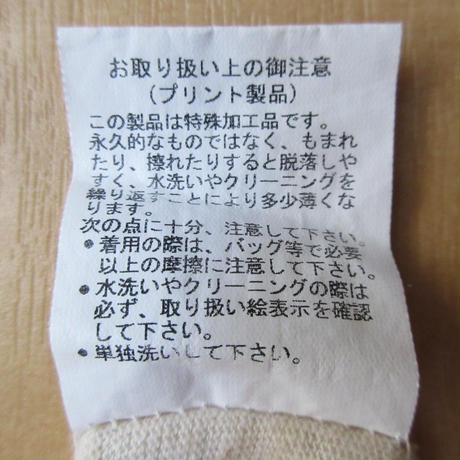 お取り扱い上の御注意
(プリント製品)
この製品は特殊加工品です。
永久的なものではなく、もまれ
たり、擦れたりすると脱落しや
すく、水洗いやクリーニングを
繰り返すことにより多少薄くな
ります。
次の点に十分、注意して下さい。
●着用の際は、バッグ等で必要
以上の摩擦に注意して下さい。
●水洗いやクリーニングの際は
必ず、取り扱い絵表示を確認
して下さい。
●単独洗いして下さい。